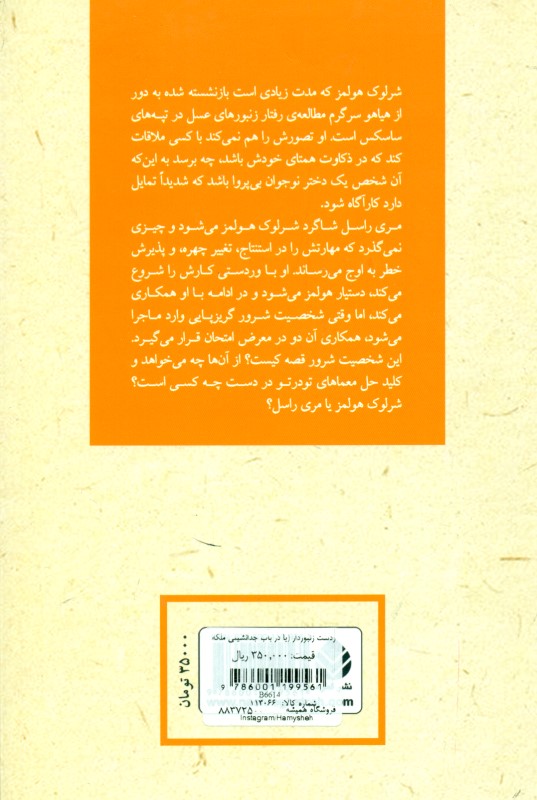 شرلوک هولمز که مدت زیادی است بازنشسته شده به دور
از هیاهو سرگرم مطالعه‌ی رفتار زنبورهای عسل در تپه‌های
ساسکس است. او تصورش را هم نمی‌کند با کسی ملاقات
کند که در ذکاوت همتای خودش باشد، چه برسد به این‌که
آن شخص یک دختر نوجوان بی‌پروا باشد که شدیداً تمایل
دارد کارآگاه شود.
مری راسل شاگرد شرلوک هولمز می‌شود و چیزی
نمی‌گذرد که مهارتش را در استنتاج، تغییر چهره، و پذیرش
خطر به اوج می‌رساند. او با وردستی کارش را شروع
می‌کند، دستیار هولمز می‌شود و در ادامه با او همکاری
می‌کند، اما وقتی شخصیت شرور گریزپایی وارد ماجرا
می‌شود، همکاری آن دو در معرض امتحان قرار می‌گیرد.
این شخصیت شرور قصه کیست؟ از آن‌ها چه می‌خواهد و
کلید حل معماهای تودرتو در دست چه کسی است؟
شرلوک هولمز یا مری راسل؟
۳۵۰۰۰ تومان
ردست زنبوردار (یا در باب جدانشینی ملکه
قیمت: ۳۵۰,۰۰۰ ریال
9 786001 199561
B6614
شماره کالا: ۱۱۳۰۶۶
فروشگاه همیشه ۸۸۳۷۲۵۰
Instagram:Hamysheh
نش
om